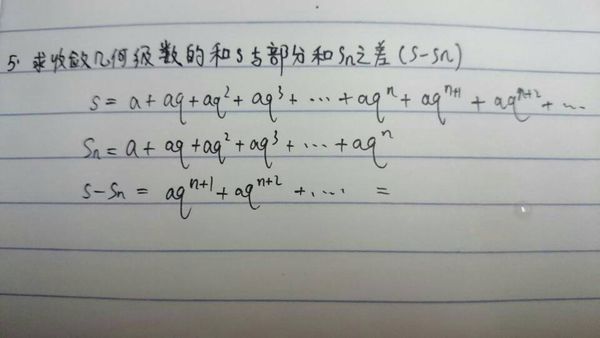 5. 求收敛几何级数的和s与部分和Sn之差(S-Sn)
s = a + aq + aq² + aq³ + ⋯ + aqⁿ + aqⁿ⁺¹ + aqⁿ⁺² + ⋯
Sn = a + aq + aq² + aq³ + ⋯ + aqⁿ
s-Sn = aqⁿ⁺¹ + aqⁿ⁺² + ⋯ =